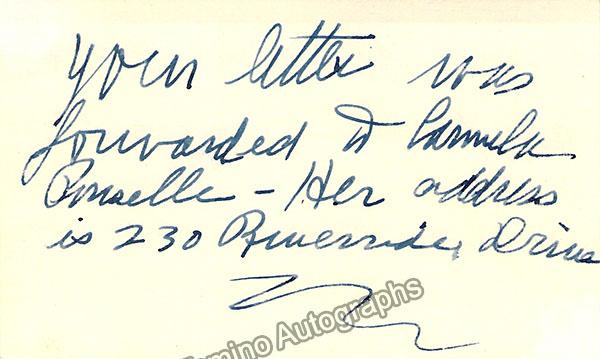 Your letter was
forwarded to Carmela
Ponselle - Her address
is 230 Riverside, Drive
Tamino Autographs